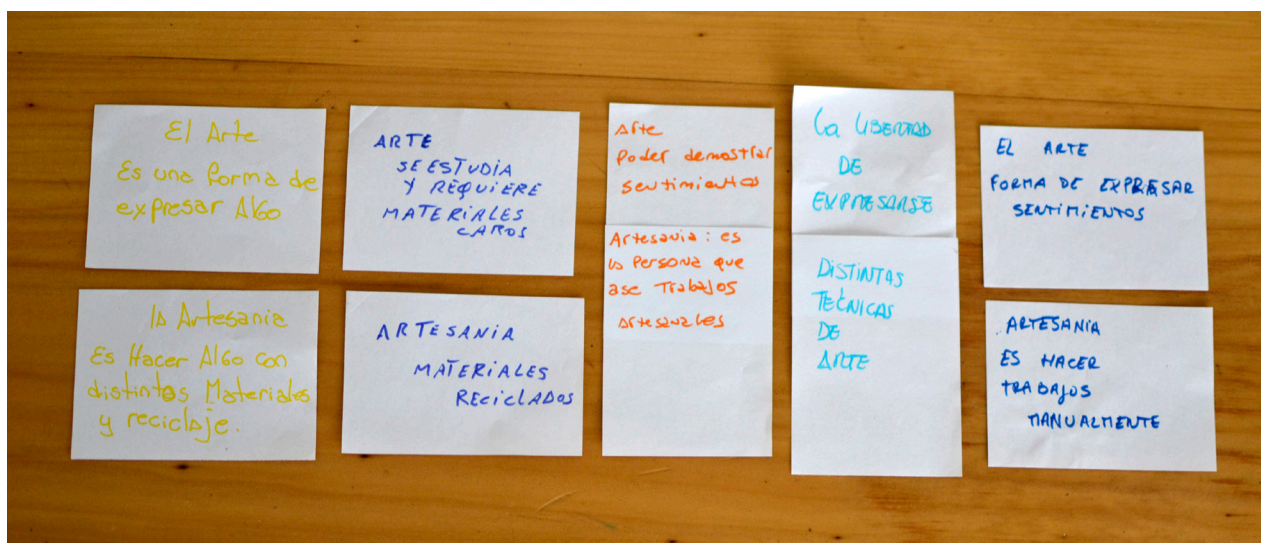 El Arte
Es una forma de
expresar Algo
la Artesania
Es Hacer Algo con
distintos Materiales
y reciclaje.
ARTE
SE ESTUDIA
Y REQUIERE
MATERIALES
CAROS
ARTESANIA
MATERIALES
RECiClADOS
Arte
Poder demostrar
sentimientos
Artesania: es
la Persona que
ase Trabajos
artesanales
La LIBERTAD
DE
EXPRESARSE
DISTINTAS
TÉCNICAS
DE
ARTE
EL ARTE
FORMA DE EXPRESAR
SENTIMIENTOS
ARTESANIA
ES HACER
TRABAJOS
MANUALMENTE